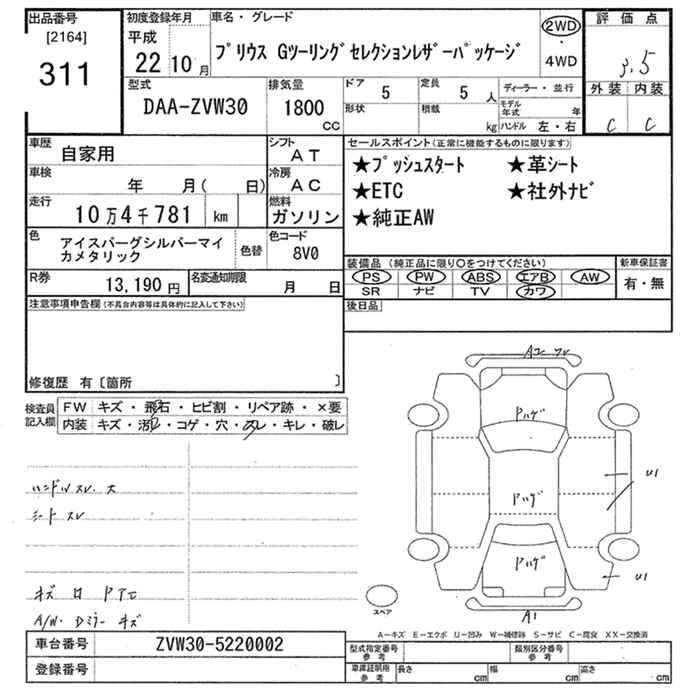 出品番号
[2164]
311
初度登録年月
平成
22 10 月
車名・グレード
プリウス Gツーリングセレクションレザーパッケージ
2WD
・
4WD
評価点
3.5
外装 内装
C C
型式
DAA-ZVW30
排気量
1800
CC
ドア
5
定員
5 人
形状
積載
kg
ディーラー・並行
モデル年式
年
ハンドル 左・右
車歴
自家用
シフト
AT
車検
年 月( 日)
冷房
AC
走行
10万4千781 km
燃料
ガソリン
色
アイスバーグシルバーマイ
カメタリック
色替
色コード
8V0
R券
13,190 円
名変通知期限
月 日
セールスポイント(正常に機能するものに限ります)
★プッシュスタート ★革シート
★ETC ★社外ナビ
★純正AW
装備品 (純正品に限り○をつけてください)
PS PW ABS エアB AW
SR ナビ TV カワ
新車保証書
有・無
後日品
注意事項申告欄(不具合内容等は具体的に記入して下さい)
修復歴 有〔箇所 〕
検査員
記入欄
FW キズ・飛石・ヒビ割・リペア跡・×要
内装 キズ・汚れ・コゲ・穴・スレ・キレ・破レ
ハンドルスレ大
シートスレ
キズ
A/W・Dミラー キズ
Pハゲ
Pハゲ
Pハゲ
U1
U1
A1
スペア
A－キズ E－エクボ U－凹み W－補修跡 S－サビ C－腐食 XX－交換済
車台番号
ZVW30-5220002
登録番号
型式指定番号
参考
類別区分番号
参考
車庫証明用
参考
長さ cm 幅 cm 高さ cm